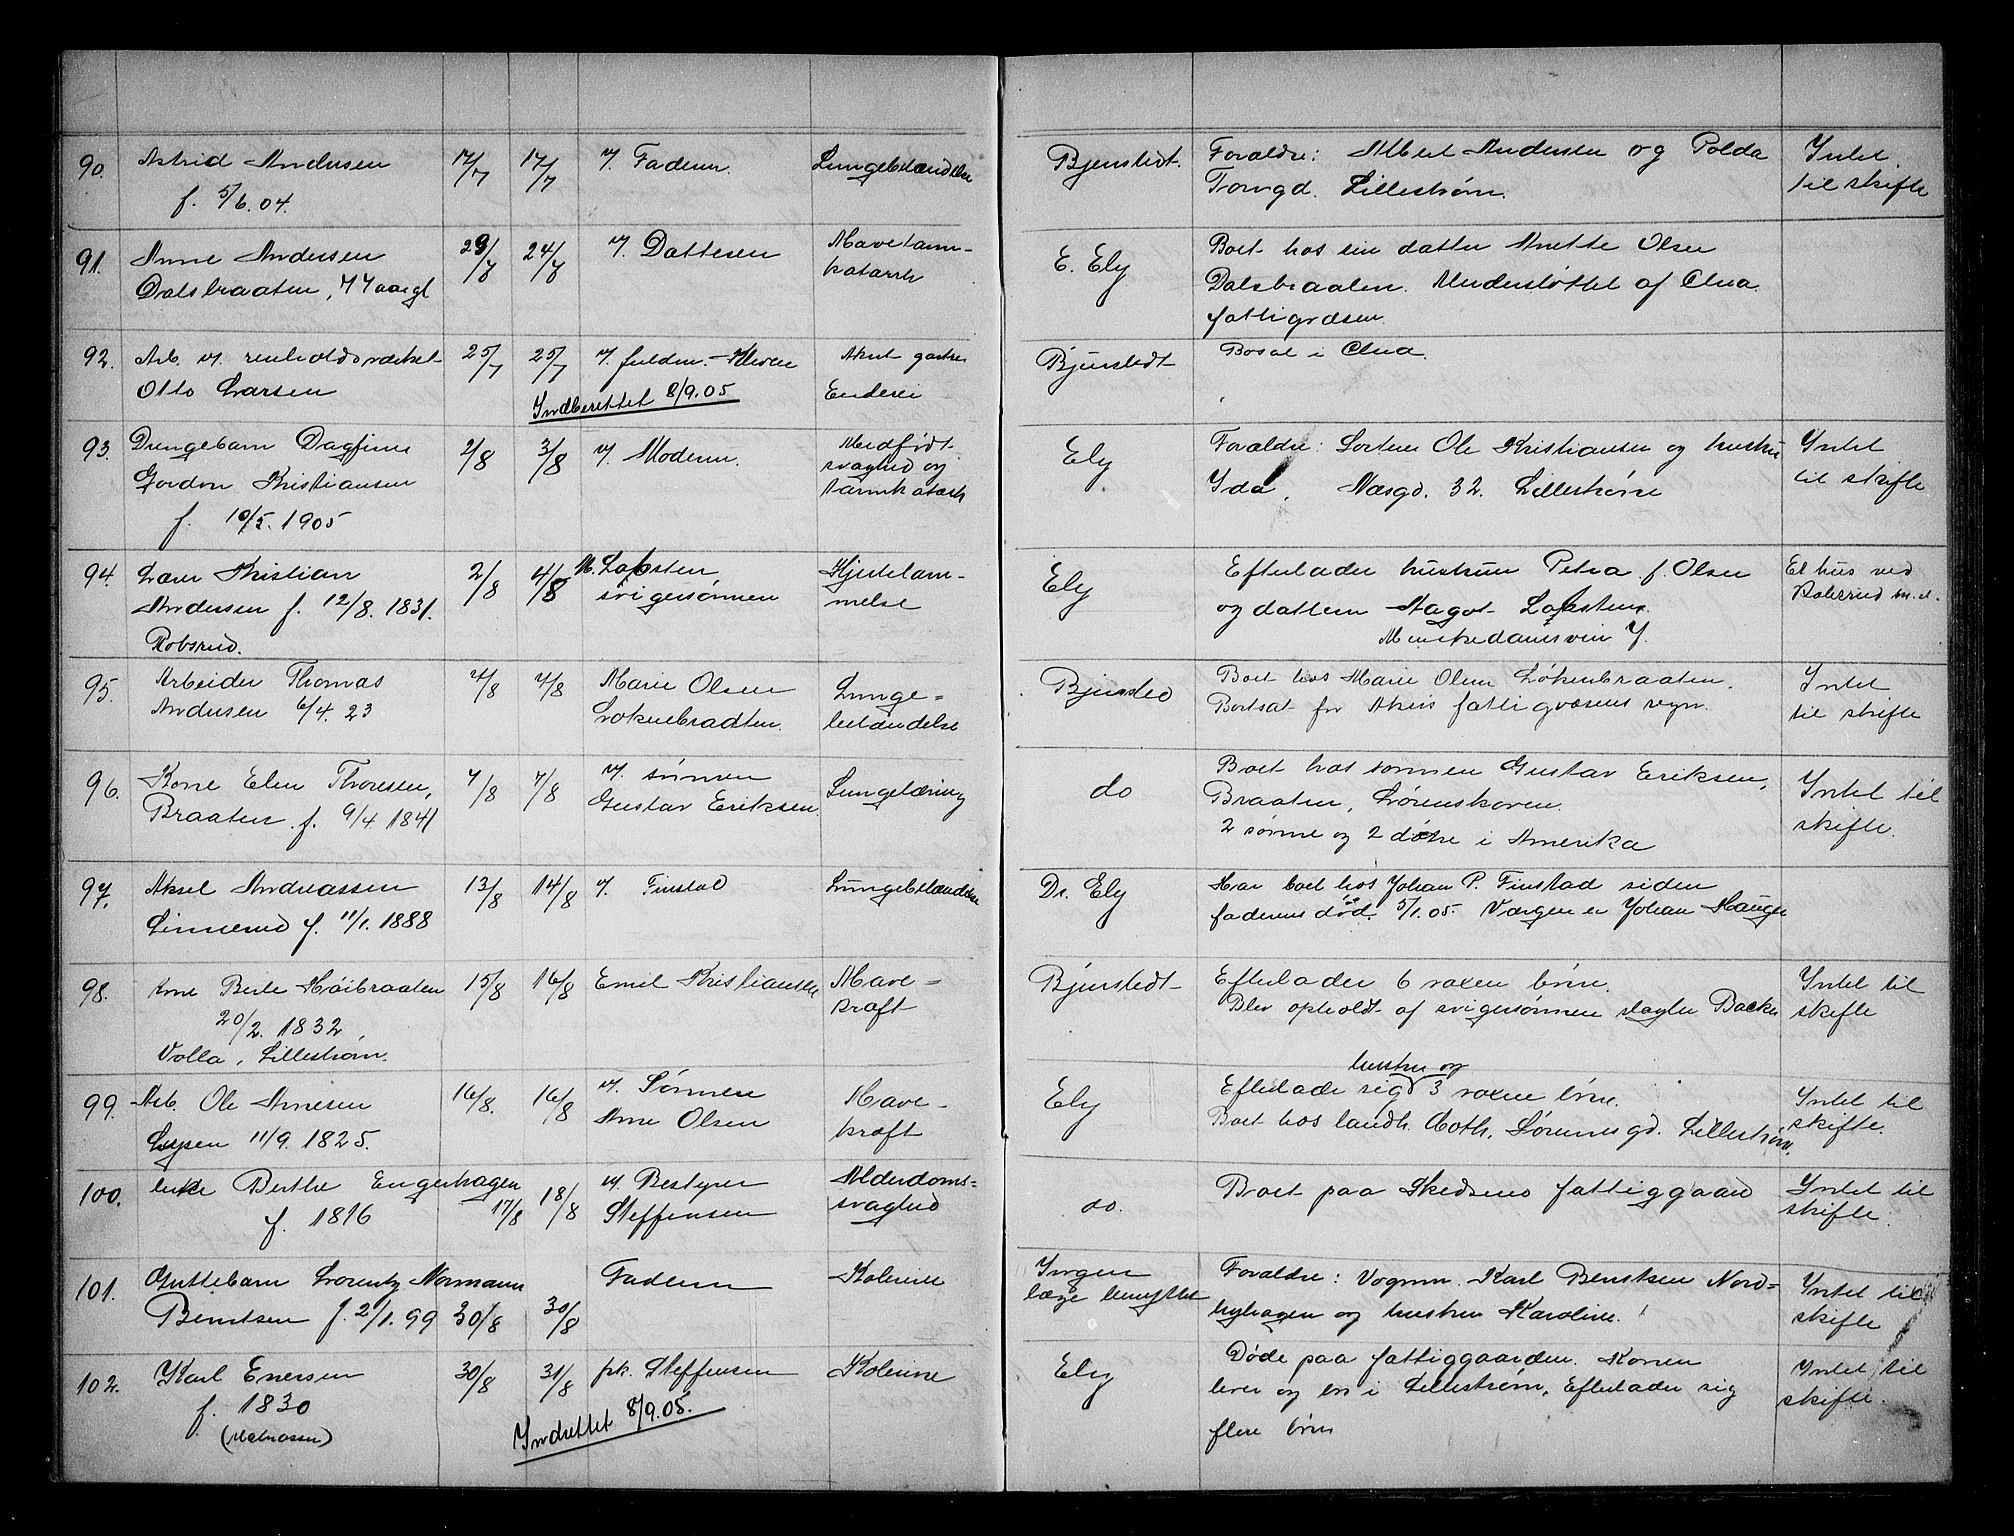 90. Astrid Andersen 17/7 17/7 v. Faderen. Lungebetændelse Bjerstedt. Forældre: Albert Andersen og Polda Intet
f. 5/6.04. Torvgd. Lillestrøm. til skifte
91. Anne Andersen 23/7 24/7 v. Datteren Mavetarm- E. Ely Boet hos sin datter Anette Olsen
Dalsbraaten, 77 aargl katarrh Dalsbraaten. Understøttet af
fattigvæsen
92. Arb. v. renholdsværket 25/7 25/7 v. Akut gastro Bjerstedt Bosat i
Otto Larsen Indberettet 8/9.05 Enderei
93. Drengebarn Dagfinn 2/8 3/8 v. Moderen. Medfødt Ely Forældre: Ole Kristiansen og hustru Intet
Gordon Kristiansen svaghed og Ida, Næsgd. 32. Lillestrøm til skifte
f. 10/5. 1905 tarmkatarh
94. Lars Kristian 2/8 4/8 svigersønnen Hjertelam- Ely Efterlader hustruen Petra f. Olsen Et hus ved
Andersen f. 12/8. 1831. melse og datteren Aagot
Robsrud. Munkedamsvein 7.
95. Arbeider Thomas 7/8 7/8 Marie Olsen Lunge= Bjersted Boet hos Marie Olsen Løkenbraaten. Intet
Andersen 6/4. 23 Løkenbraaten. betændelse Bortsat for Akers fattigvæsens regn. til skifte
96. Kone Elen Thoresen, 7/8 7/8 v. sønnen Lungetæring do Boet hos sønnen Gustav Eriksen, Intet til
Braaten f. 9/4 1841 Gustav Eriksen Braaten, Lørenskoven. skifte.
2 sønne og 2 døtre i Amerika
97. Aksel Andreassen 13/8 14/8 v. Finstad Lungebetændelse Dr. Ely Har boet hos Johan P. Finstad siden
Linnerud f. 11/1. 1888 faderens død 5/1.05. Værgen er Johan Hauger
98. Berte Høibraaten 15/8 16/8 Emil Kristiansen Mave= Bjerstedt Efterlader 6 voxen børn. Intet til
20/2. 1832 kræft Blev opholdt af svigersønnen slagter Backe skifte
Volla, Lillestrøm.
hustru og
99. Arb. Ole Arnesen 16/8. 16/8 v. Sønnen Mave- Ely Efterlade sig 3 voxne børn. Intet til
11/9. 1825. Arne Olsen kræft Boet hos landh. Lillestrøm. skifte.
100. Berthe Engerhagen 17/8 18/8 v. Bestyrer Alderdoms= do. Boet paa Skedsmo fattiggaard Intet til
f. 1816 Steffensen svaghed skifte.
101. Guttebarn Lorentz Normann Faderen Kolerine Ingen Forældre: Vognm. Karl Berntsen Nord= Intet til
Berntsen f. 2/1. 99 30/8 30/8 læge benyttet byhagen og hustru Karoline. skifte
102. Karl Enersen 30/8 31/8 pk. Steffensen Kolerine Ely Døde paa fattiggaarden. Konen Intet til
f. 1830 Indrettet 8/9.05. lever og bor i Lillestrøm, Efterlader sig skifte.
flere børn